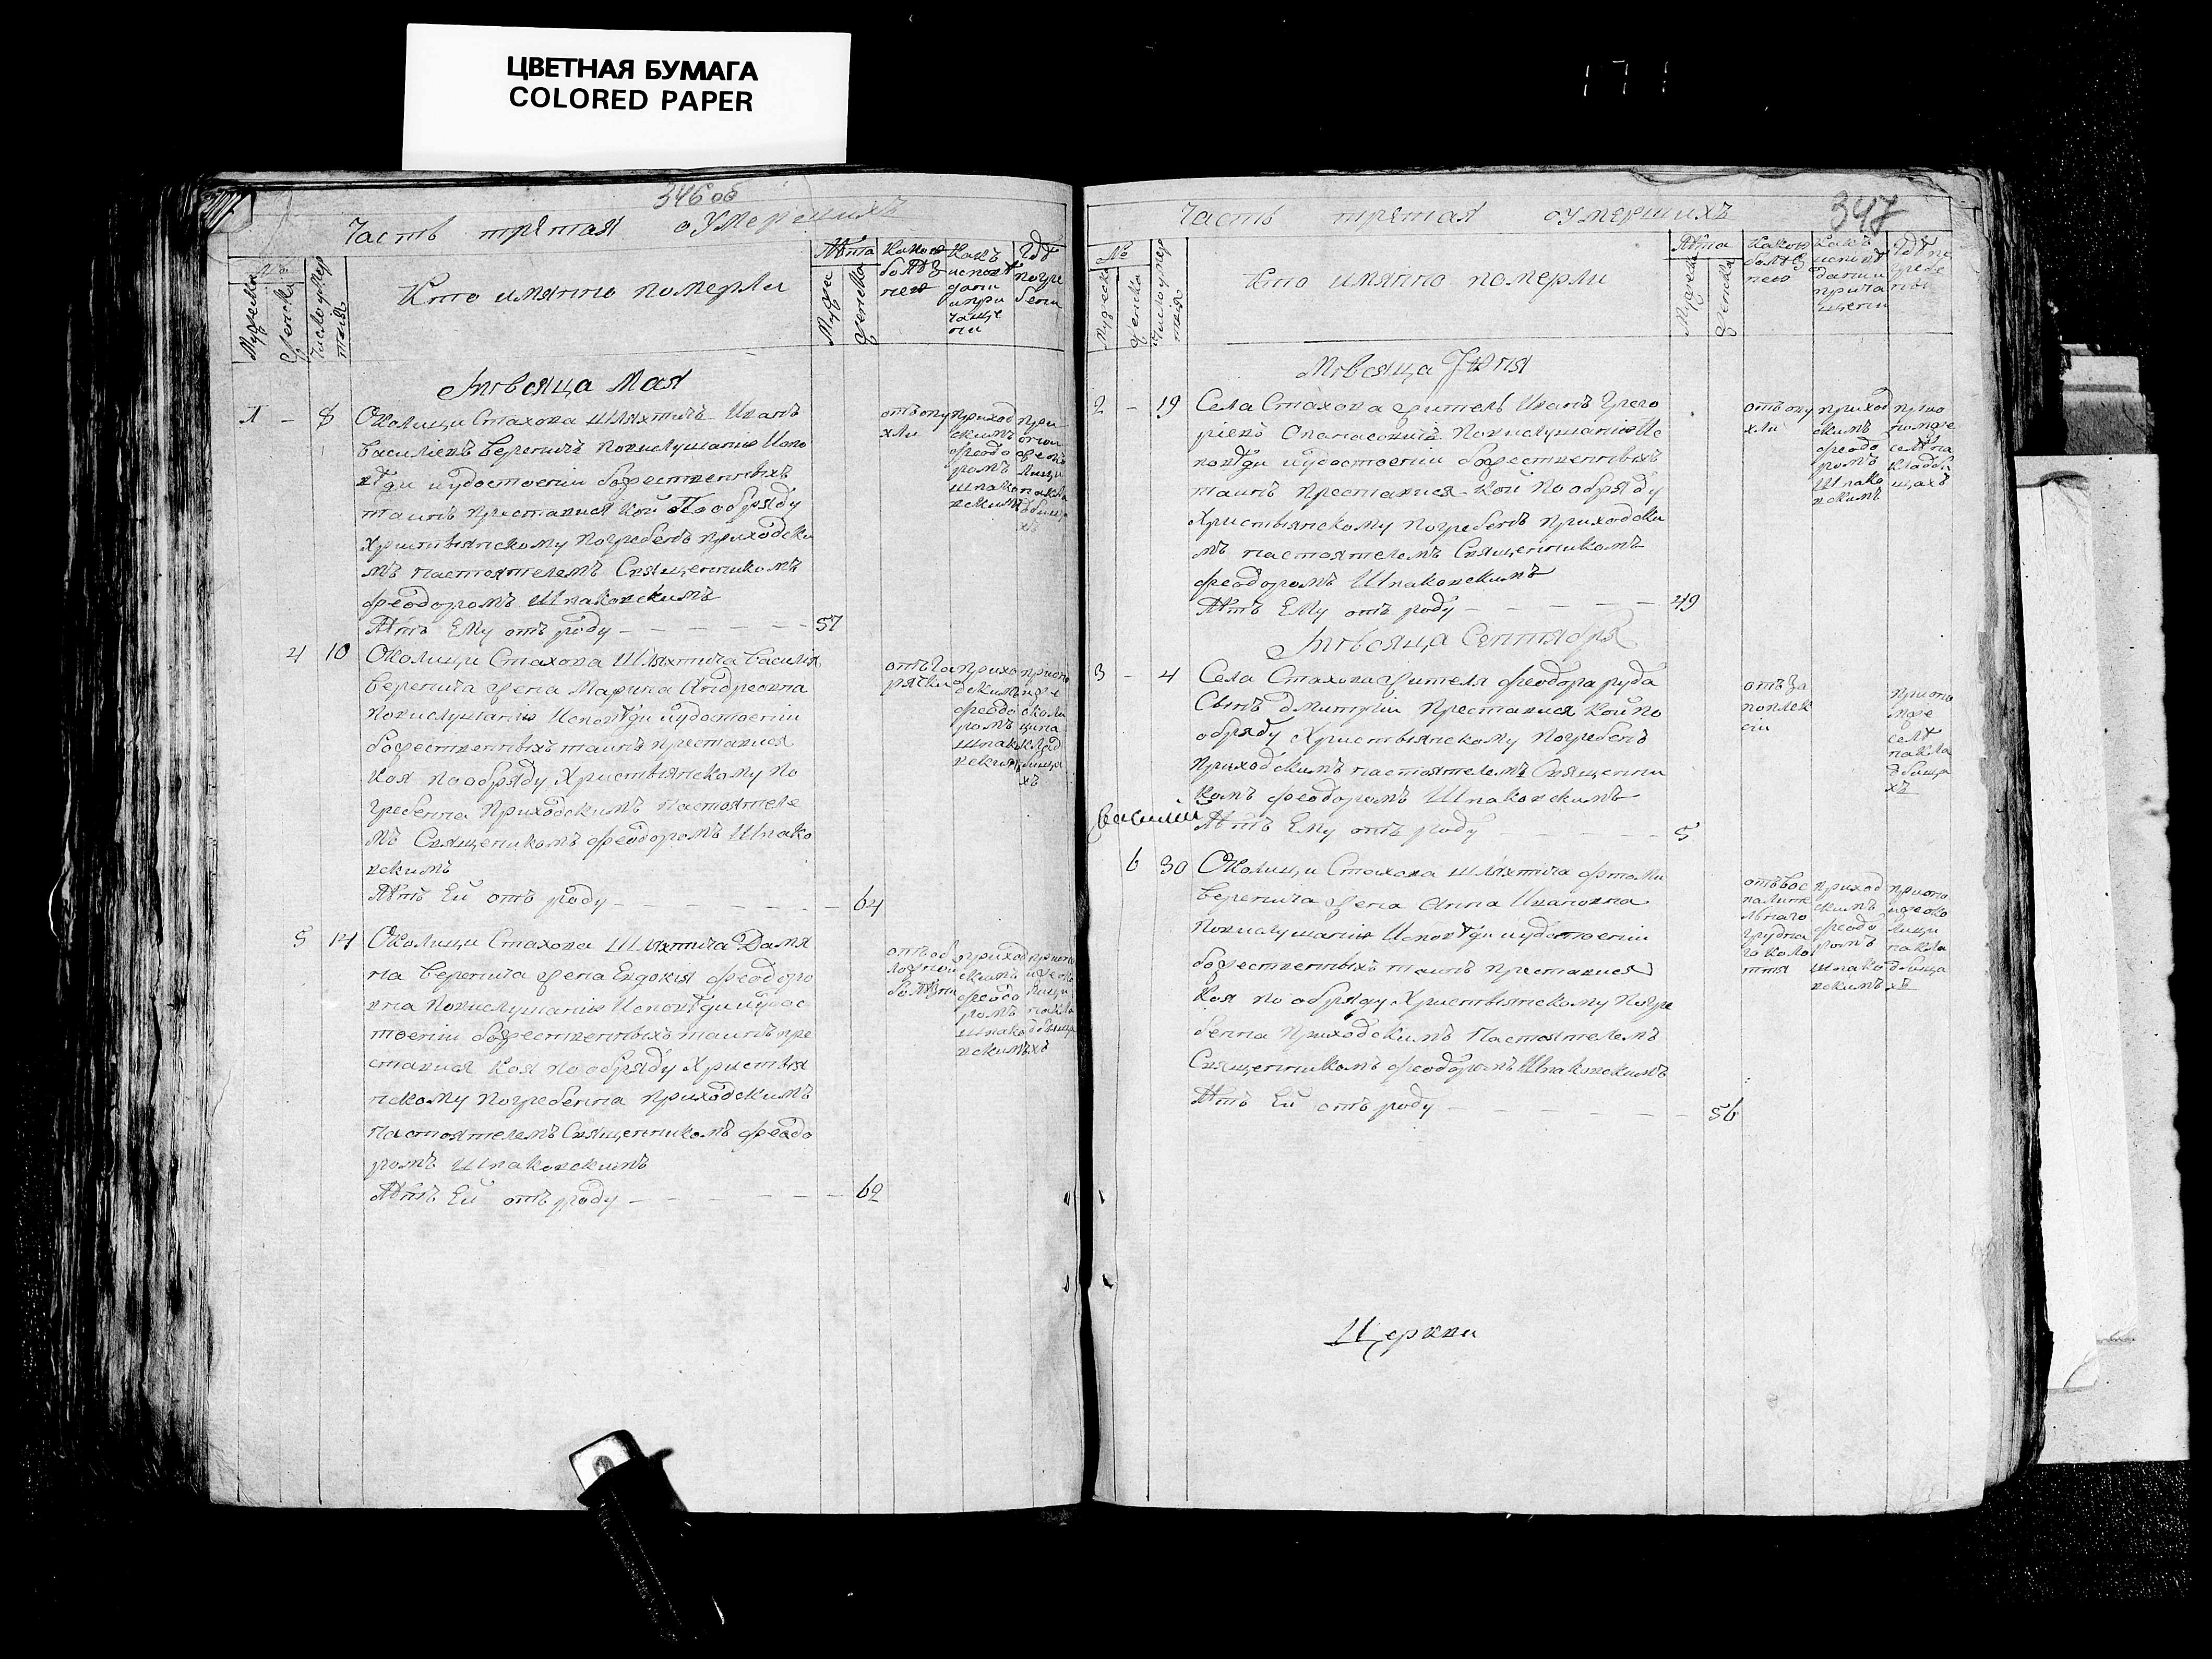 ЦВЕТНАЯ БУМАГА
COLORED PAPER
171
346 об
Часть третая о Умершихъ
№
Мужеска
Женска
Число умер
тия
Кто имянно померли
Лѣта
Мужеска
Женска
Какою
болѣз
нею
Какъ
исповѣ
даны
и при
чаще
ны
Гдѣ
погре
бены
Мѣсяца Мая
1 - 8 Околици Стахова шляхтичь Иванъ
Василіевъ Вереничъ по выслушаніи Испо
вѣди и удостоеніи Божественныхъ
таинъ преставися кой По обряду
Христіянскому погребенъ приходски
мъ настоятелемъ Священникомъ
Феодоромъ Шпаковскимъ
Лѣтъ Ему отъ роду - - - - - - 57
отъ опу
хли
приход
скимъ
феодо
ромъ
Шпако
вскимъ
4 10 Околици Стахова Шляхтича Василія
Веренича жена Марина Андреовна
по выслушаніи Исповѣди и удостоеніи
божественныхъ таинъ преставися
коя по обряду Христіянскому по
гребенна приходскимъ настоятеле
мъ Священикомъ Феодоромъ Шпако
вскимъ
Лѣтъ Ей отъ роду - - - - - - - 64
отъ го
рячки
прихо
дскимъ
феодо
ромъ
Шпако
вскимъ
5 14 Околици Стахова Шляхтича Дамя
на Веренича жена Евдокія Феодоро
вна по выслушаніи Исповѣди и удос
тоеніи божественныхъ таинъ пре
ставися коя по обряду Христія
нскому погребенна приходскимъ
настоятелемъ Священникомъ Феодо
ромъ Шпаковскимъ
Лѣтъ Ей отъ роду - - - - - - - 62
приход
скимъ
феодо
ромъ
Шпако
вскимъ
347
Часть третая о умершихъ
№
Мужеска
Женска
Число умер
тия
Кто имянно померли
Лѣта
Мужеска
Женска
Какою
болѣз
нею
Какъ
исповѣ
даны и
прича
щены
Гдѣ по
гребе
ны
Мѣсяца Іюня
2 - 19 Села Стахова житель Иванъ Григо
ріевъ Опанасовичъ по выслушаніи Ис
повѣди и удостоеніи божественныхъ
таинъ преставися кой по обряду
Христіянскому погребенъ приходски
мъ настоятелемъ Священникомъ
Феодоромъ Шпаковскимъ
Лѣтъ Ему отъ роду - - - - - 49
отъ опу
хли
приход
скимъ
феодо
ромъ
Шпако
вскимъ
при о
номже
селѣ на
кладби
щахъ
Мѣсяца Сентября
3 - 4 Села Стахова жителя Феодора Руда
Сынъ Дмитрій преставися кой по
обряду Христіянскому погребенъ
приходскимъ настоятелемъ Священни
комъ Феодоромъ Шпаковскимъ
Лѣтъ Ему отъ роду - - - - 5
Василій
отъ За
поплек
сіи
при оно
мже
селѣ
на кла
дбища
хъ
6 30 Околици Стахова шляхтича Фтоми
Веренича жена Анна Ивановна
по выслушаніи Исповѣди и удостоеніи
божественныхъ таинъ преставися
коя по обряду Христіянскому погре
бенна приходскимъ настоятелемъ
Священникомъ Феодоромъ Шпаковскимъ
Лѣтъ Ей отъ роду - - - - - - 56
отъ вос
палите
льнаго
грудна
го коло
тія
приход
скимъ
феодо
ромъ
Шпако
вскимъ
при оно
йже око
лици
на кла
дбища
хъ
Церкви